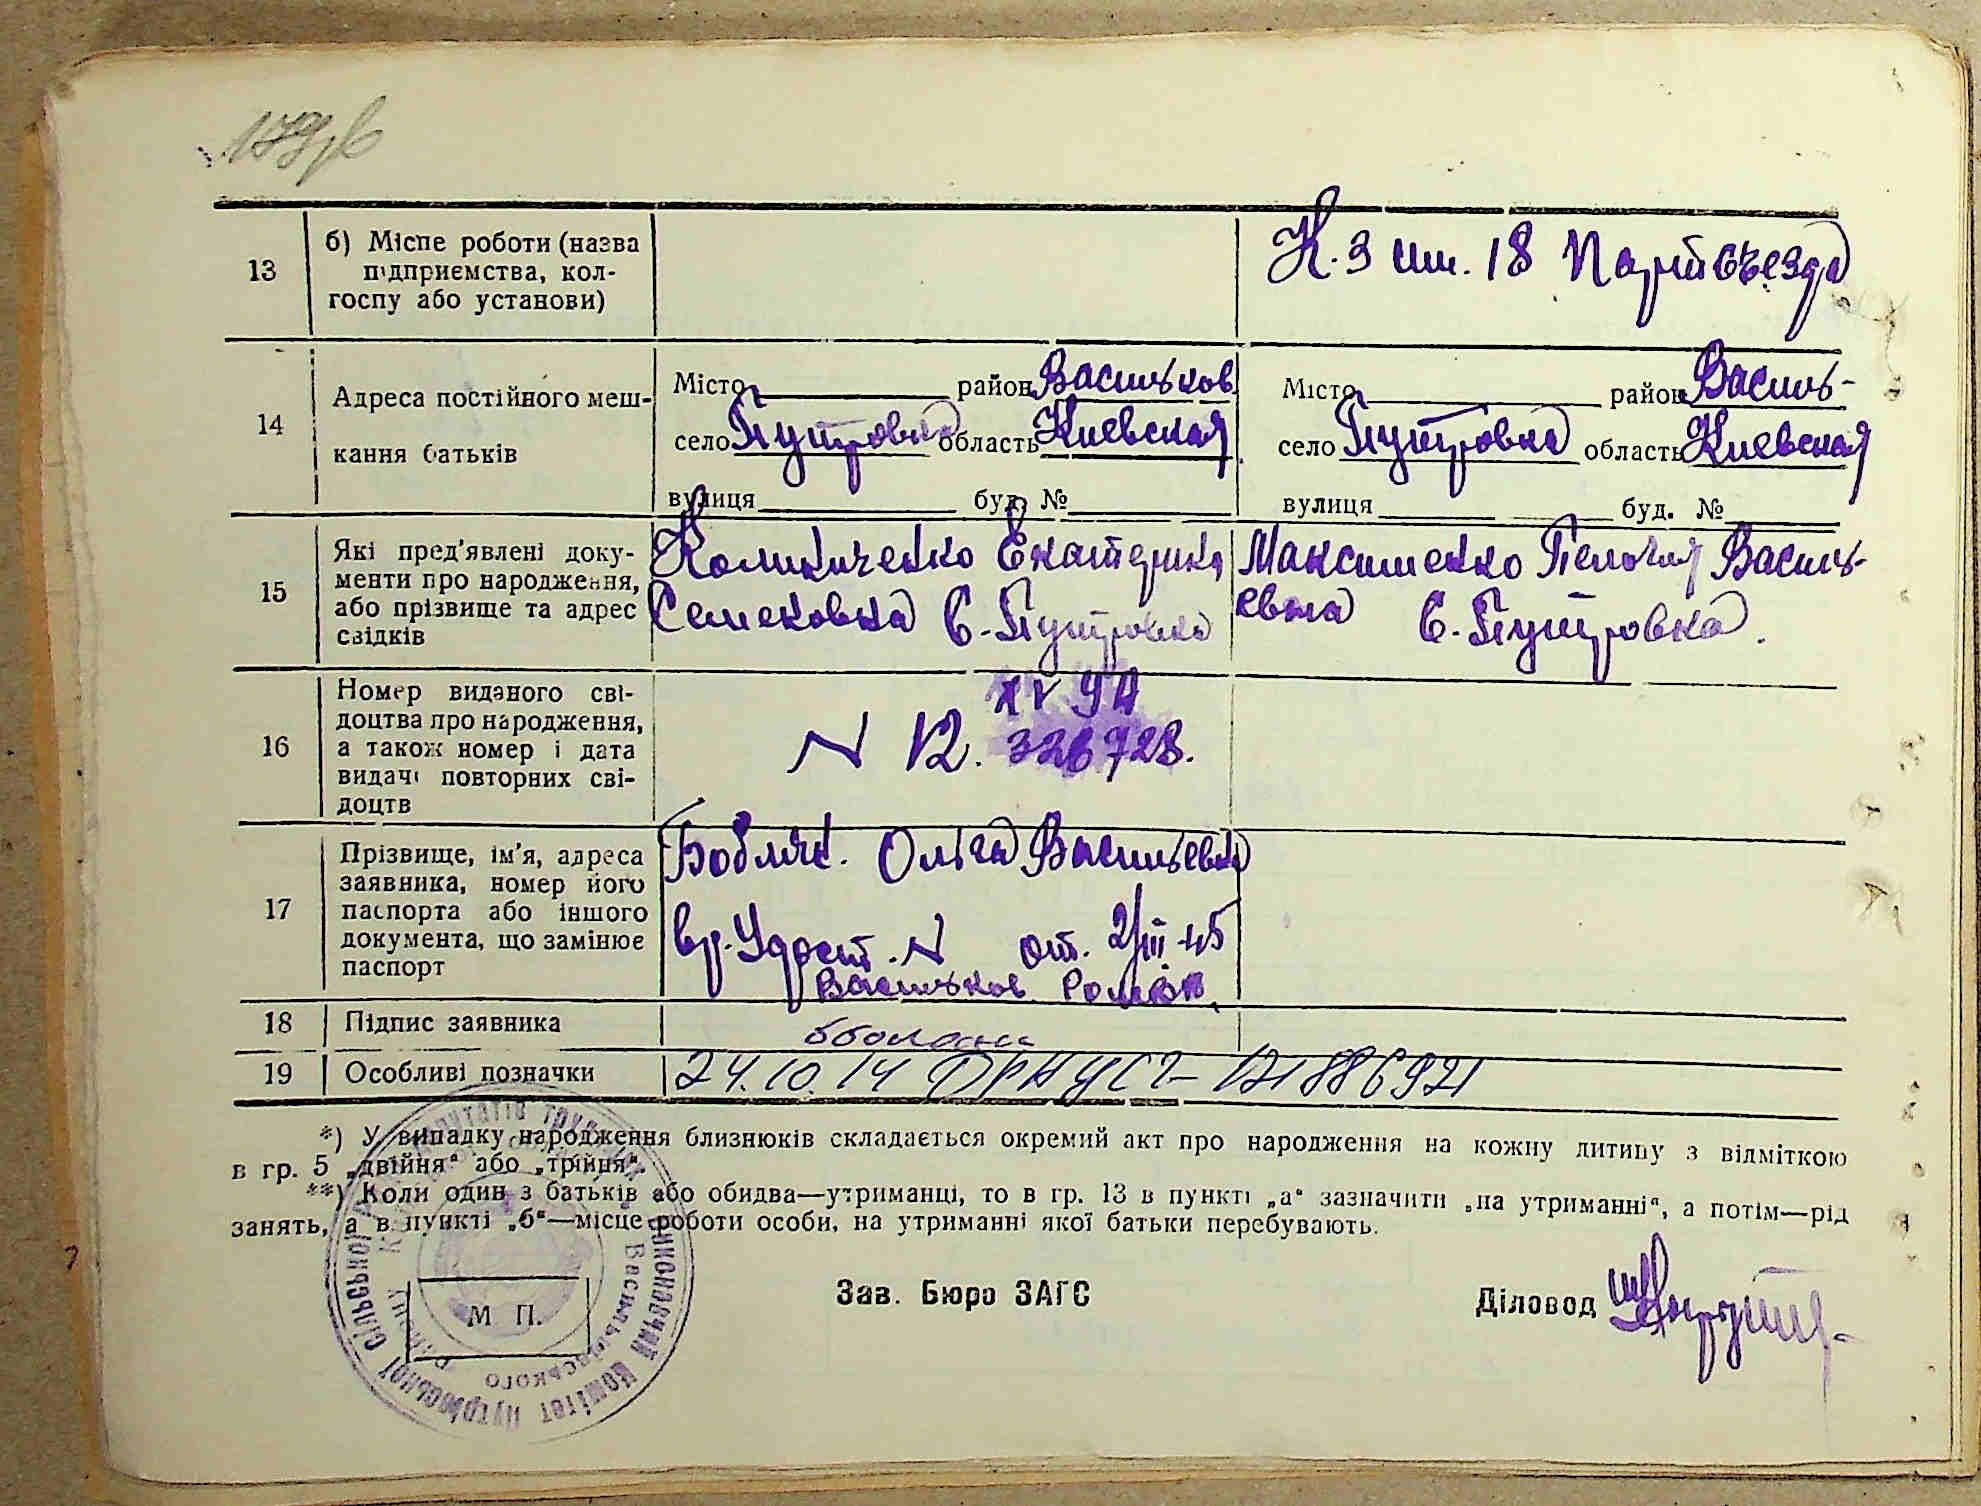 13
б) Місце роботи (назва
підприємства, кол-
госпу або установи)
К-з им. 18 Партсъезда
14
Адреса постійного меш-
кання батьків
Місто район Васильков
село Путровка область Киевская
вулиця буд. №
Місто район Василь-
село Путровка область Киевская
вулиця буд. №
15
Які пред'явлені доку-
менти про народження,
або прізвище та адрес
свідків
Екатерина
Семеновна с. Путровка
Максименко Василь-
евна с. Путровка.
16
Номер виданого сві-
доцтва про народження,
а також номер і дата
видачі повторних сві-
доцтв
XV 9А
N 12. 326728.
17
Прізвище, ім'я, адреса
заявника, номер його
паспорта або іншого
документа, що замінює
паспорт
Ольга Васильевна
вр. Удост. N от. 2/III-45
Васильков
18
Підпис заявника
19
Особливі позначки
24.10.14 ДРАЦСГ- 121886921
*) У випадку народження близнюків складається окремий акт про народження на кожну дитину з відміткою
в гр. 5 „двійня“ або „трійня“.
**) Коли один з батьків або обидва—утриманці, то в гр. 13 в пункті „а“ зазначити „на утриманні“, а потім—рід
занять, а в пункті „б“—місце роботи особи, на утриманні якої батьки перебувають.
М П.
Зав. Бюро ЗАГС
Діловод
Виконавчий Комітет Путрівської сільської
Васильківського району